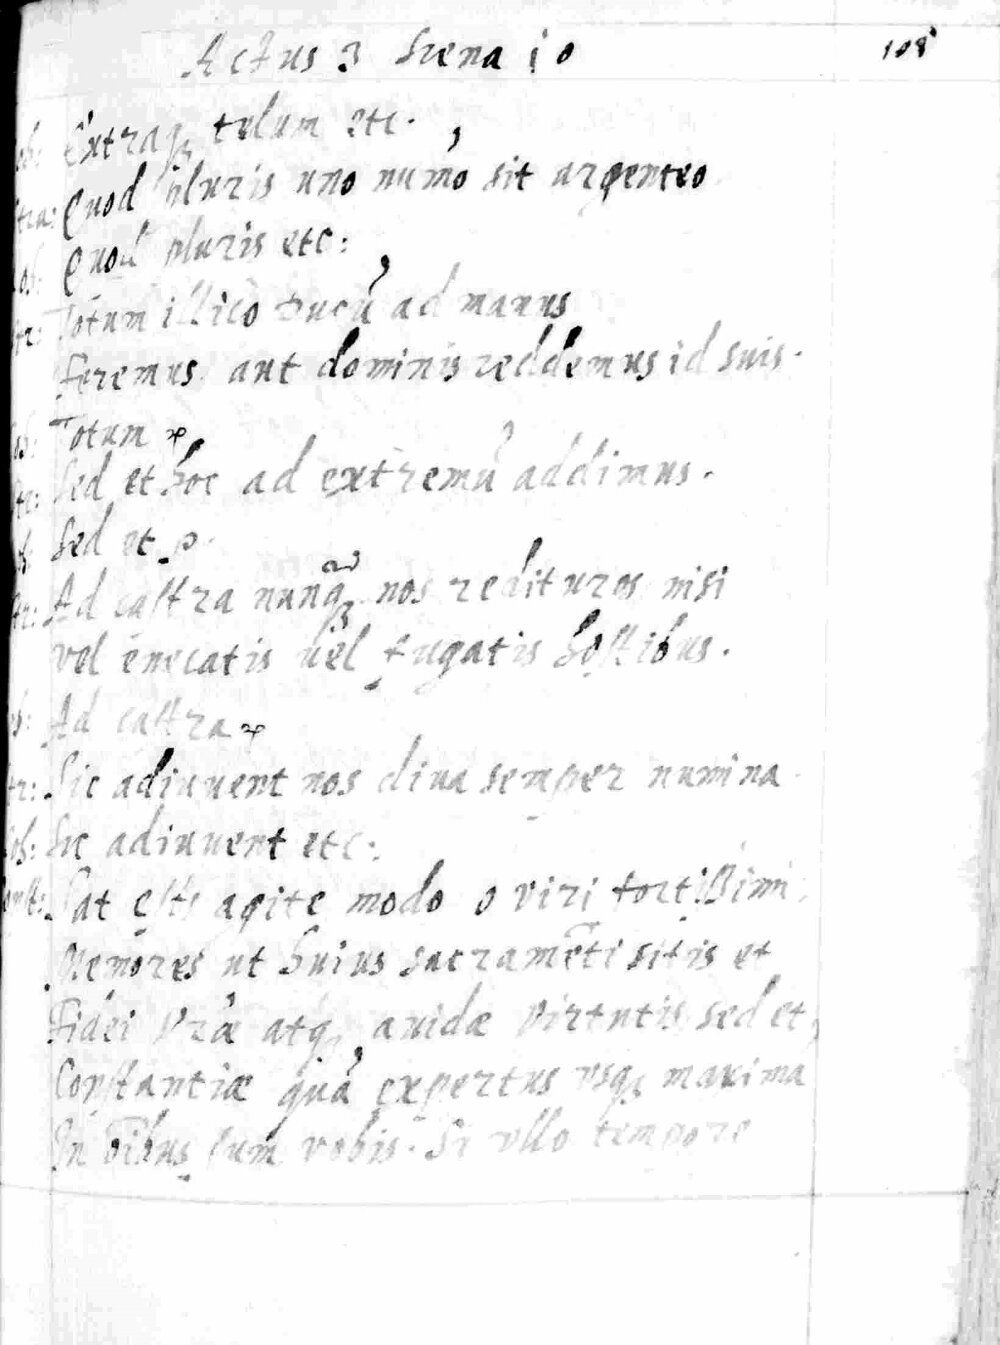 Actus 3 Scena 10 108
Extraq; telum etc.
Quod pluris uno numo sit argenteo
Quod pluris etc:
Totum illico ducũ ad manus
Feremus aut dominis reddemus id suis.
Totum
Sed et hoc ad extremũ addimus.
Sed et
Ad castra nunq; nos redituros nisi
vel enecatis uel fugatis hostibus.
Ad castra
tr: Sic adiuuent nos diua semper numina
ob: Sic adiuuent etc:
Sat est agite modo o viri fortissimi
Memores ut huius sacramẽti sitis et
Fidei vrãe atq; auidæ virtutis sed et
Constantiæ quã expertus usq; maxima
In oĩbus sum vobis. Si vllo tempore